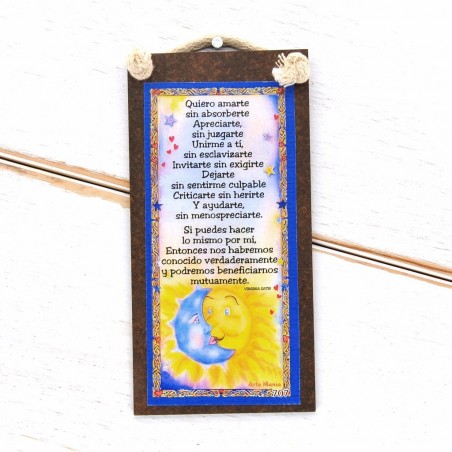 Quiero amarte
sin absorberte
Apreciarte,
sin juzgarte
Unirme a tí,
sin esclavizarte
Invitarte sin exigirte
Dejarte
sin sentirme culpable
Criticarte sin herirte
Y ayudarte,
sin menospreciarte.
Si puedes hacer
lo mismo por mí,
Entonces nos habremos
conocido verdaderamente
y podremos beneficiarnos
mutuamente.
VIRGINIA SATIR
Arte Manía
707